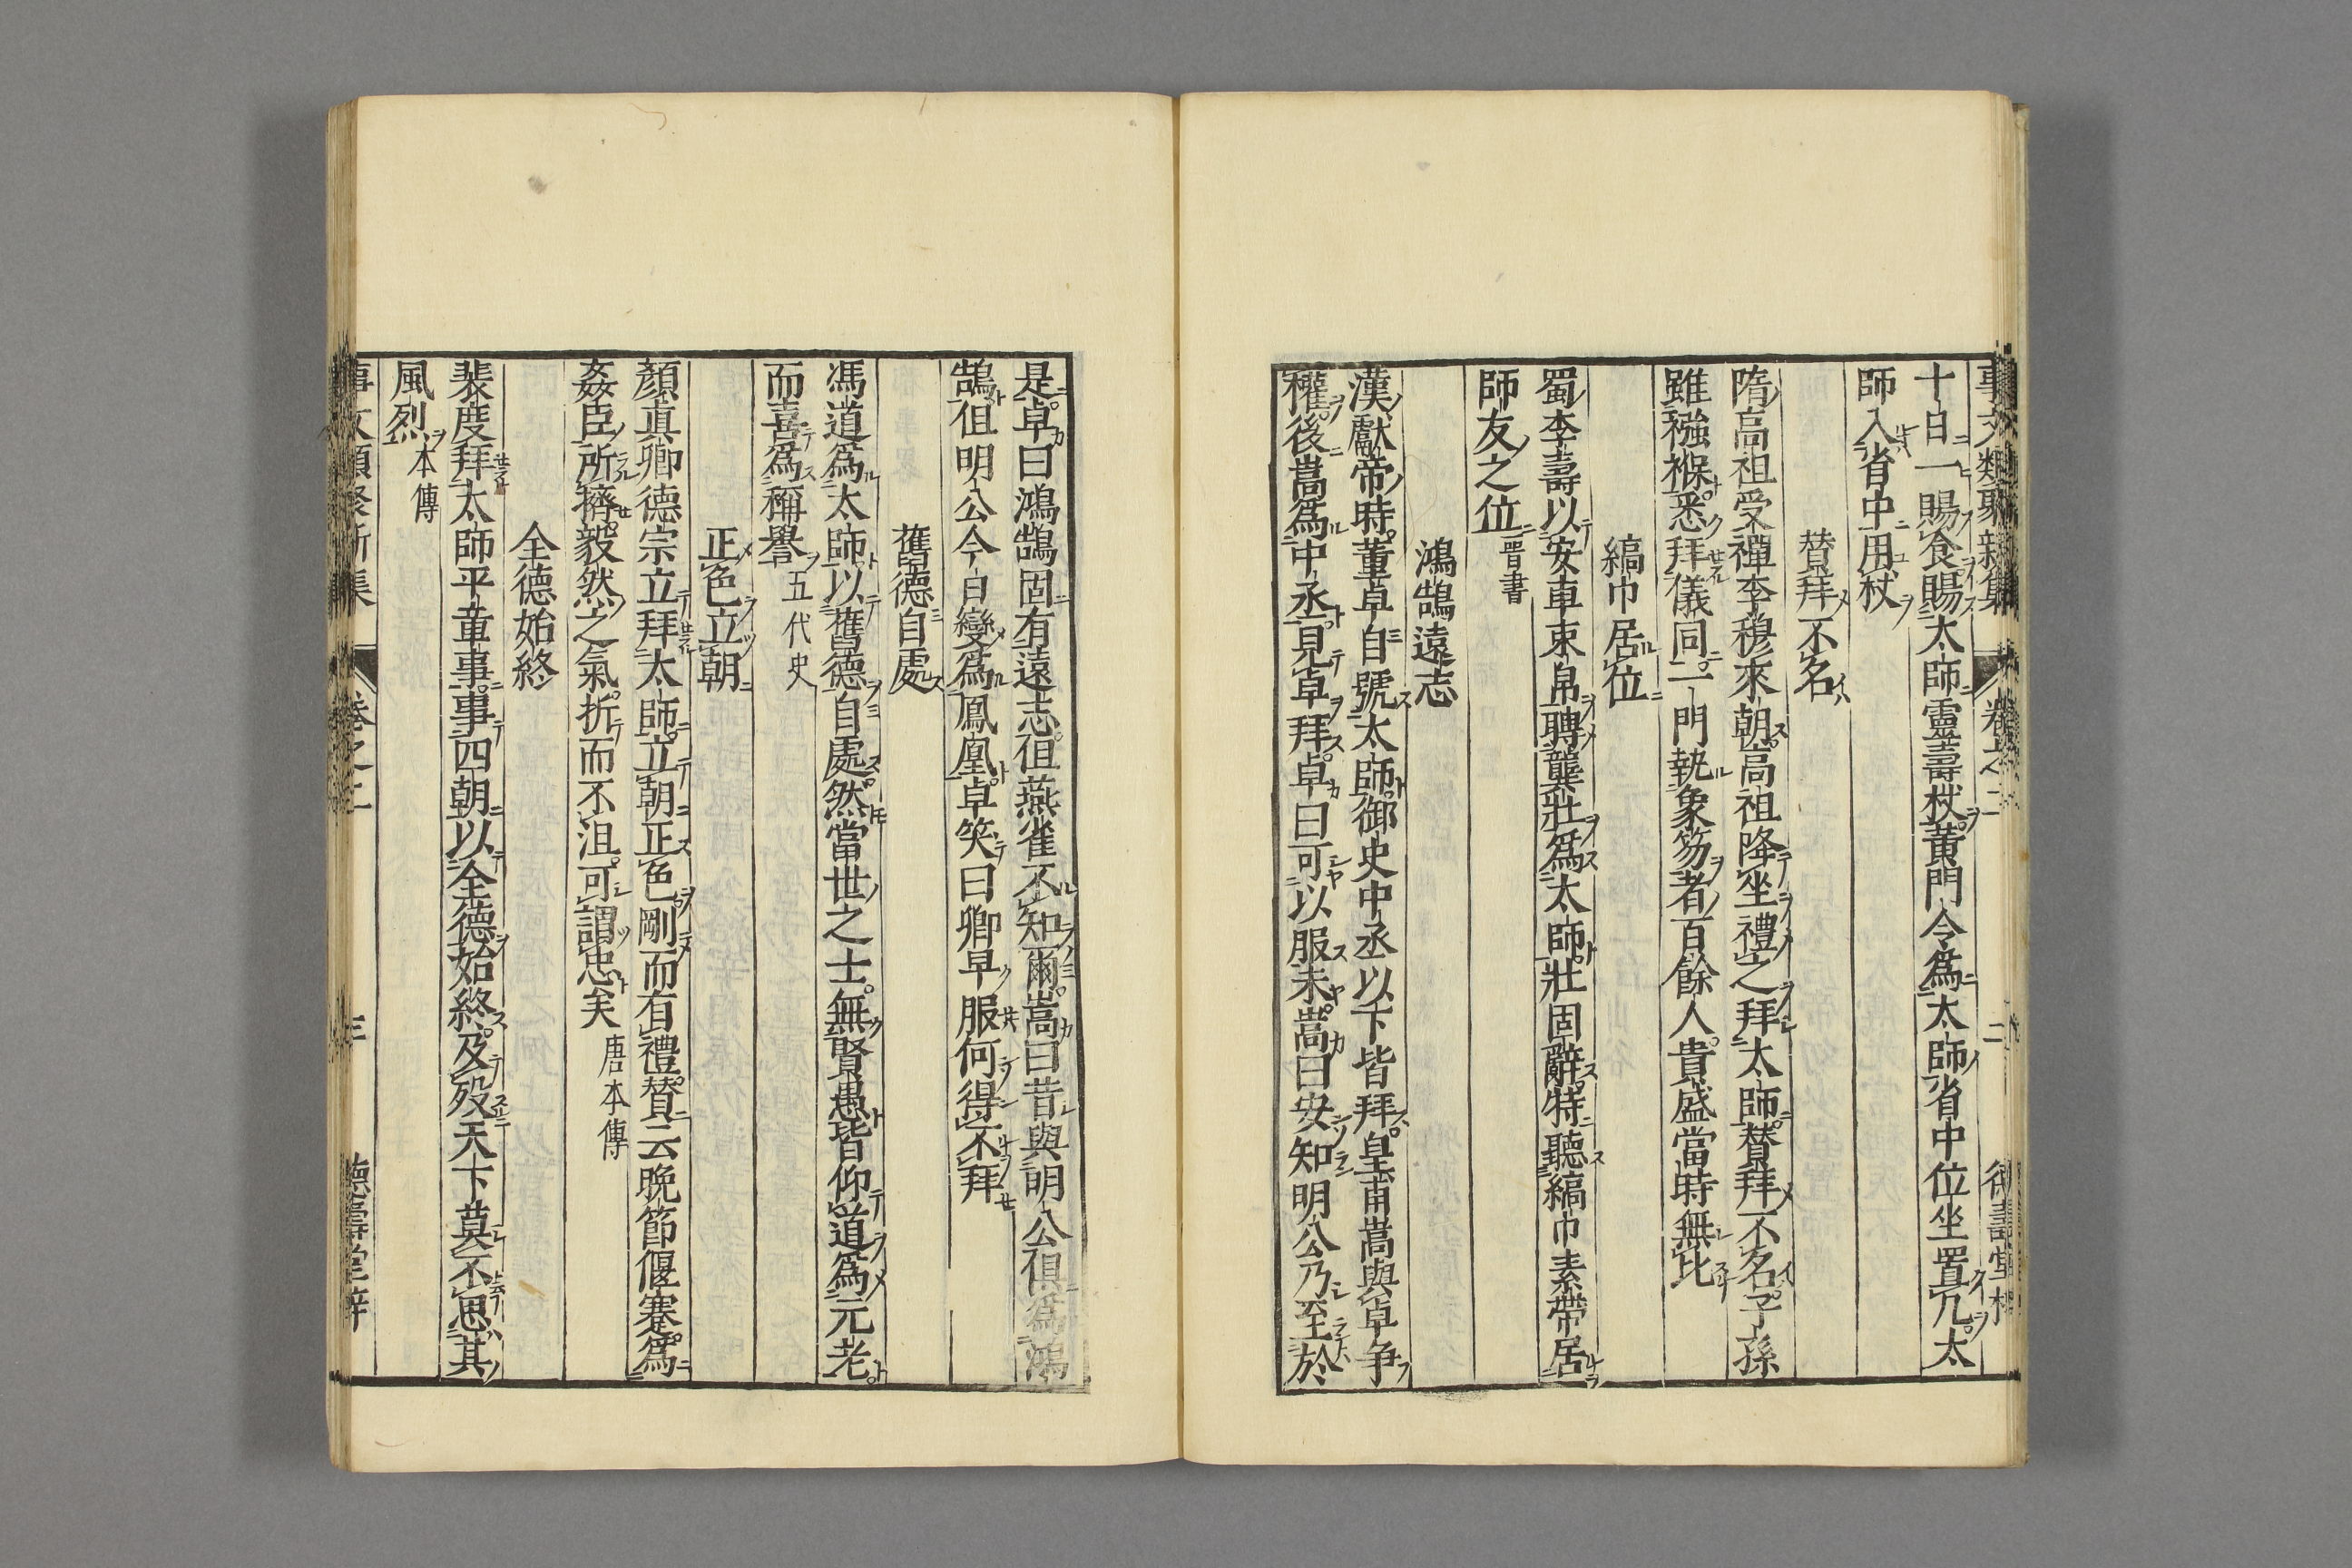 事文類聚新集 卷之二 二 德壽堂梓
十日一賜食賜太師靈壽杖黃門令爲太師省中位坐置几太
師入省中用杖
賛拜不名
隋高祖受禪李穆來朝高祖降坐禮之拜太師賛拜不名子孫
雖襁褓悉拜儀同一門執象笏者百餘人貴盛當時無比
縞巾居位
蜀李壽以安車束帛聘龔壯爲太師壯固辭特聽縞巾素帶居
師友之位晋書
鴻鵠遠志
漢獻帝時董卓自號太師御史中丞以下皆拜皇甫嵩與卓爭
權後嵩爲中丞見卓拜卓曰可以服未嵩曰安知明公乃至於
是卓曰鴻鵠固有遠志伹燕雀不知爾嵩曰昔與明公俱爲鴻
鵠伹明公今日變爲鳳凰卓笑曰卿早服何得不拜
舊德自處
馮道爲太師以舊德自處然當世之士無賢愚皆仰道爲元老
而喜爲稱譽五代史
正色立朝
顏真卿德宗立拜太師立朝正色剛而有禮賛云晚節偃蹇爲
姦臣所擠毅然之氣折而不沮可謂忠矣唐本傳
全德始終
裴度拜太師平章事事四朝以全德始終及歿天下莫不思其
風烈本傳
事文類聚新集 卷之二 三 德壽堂梓